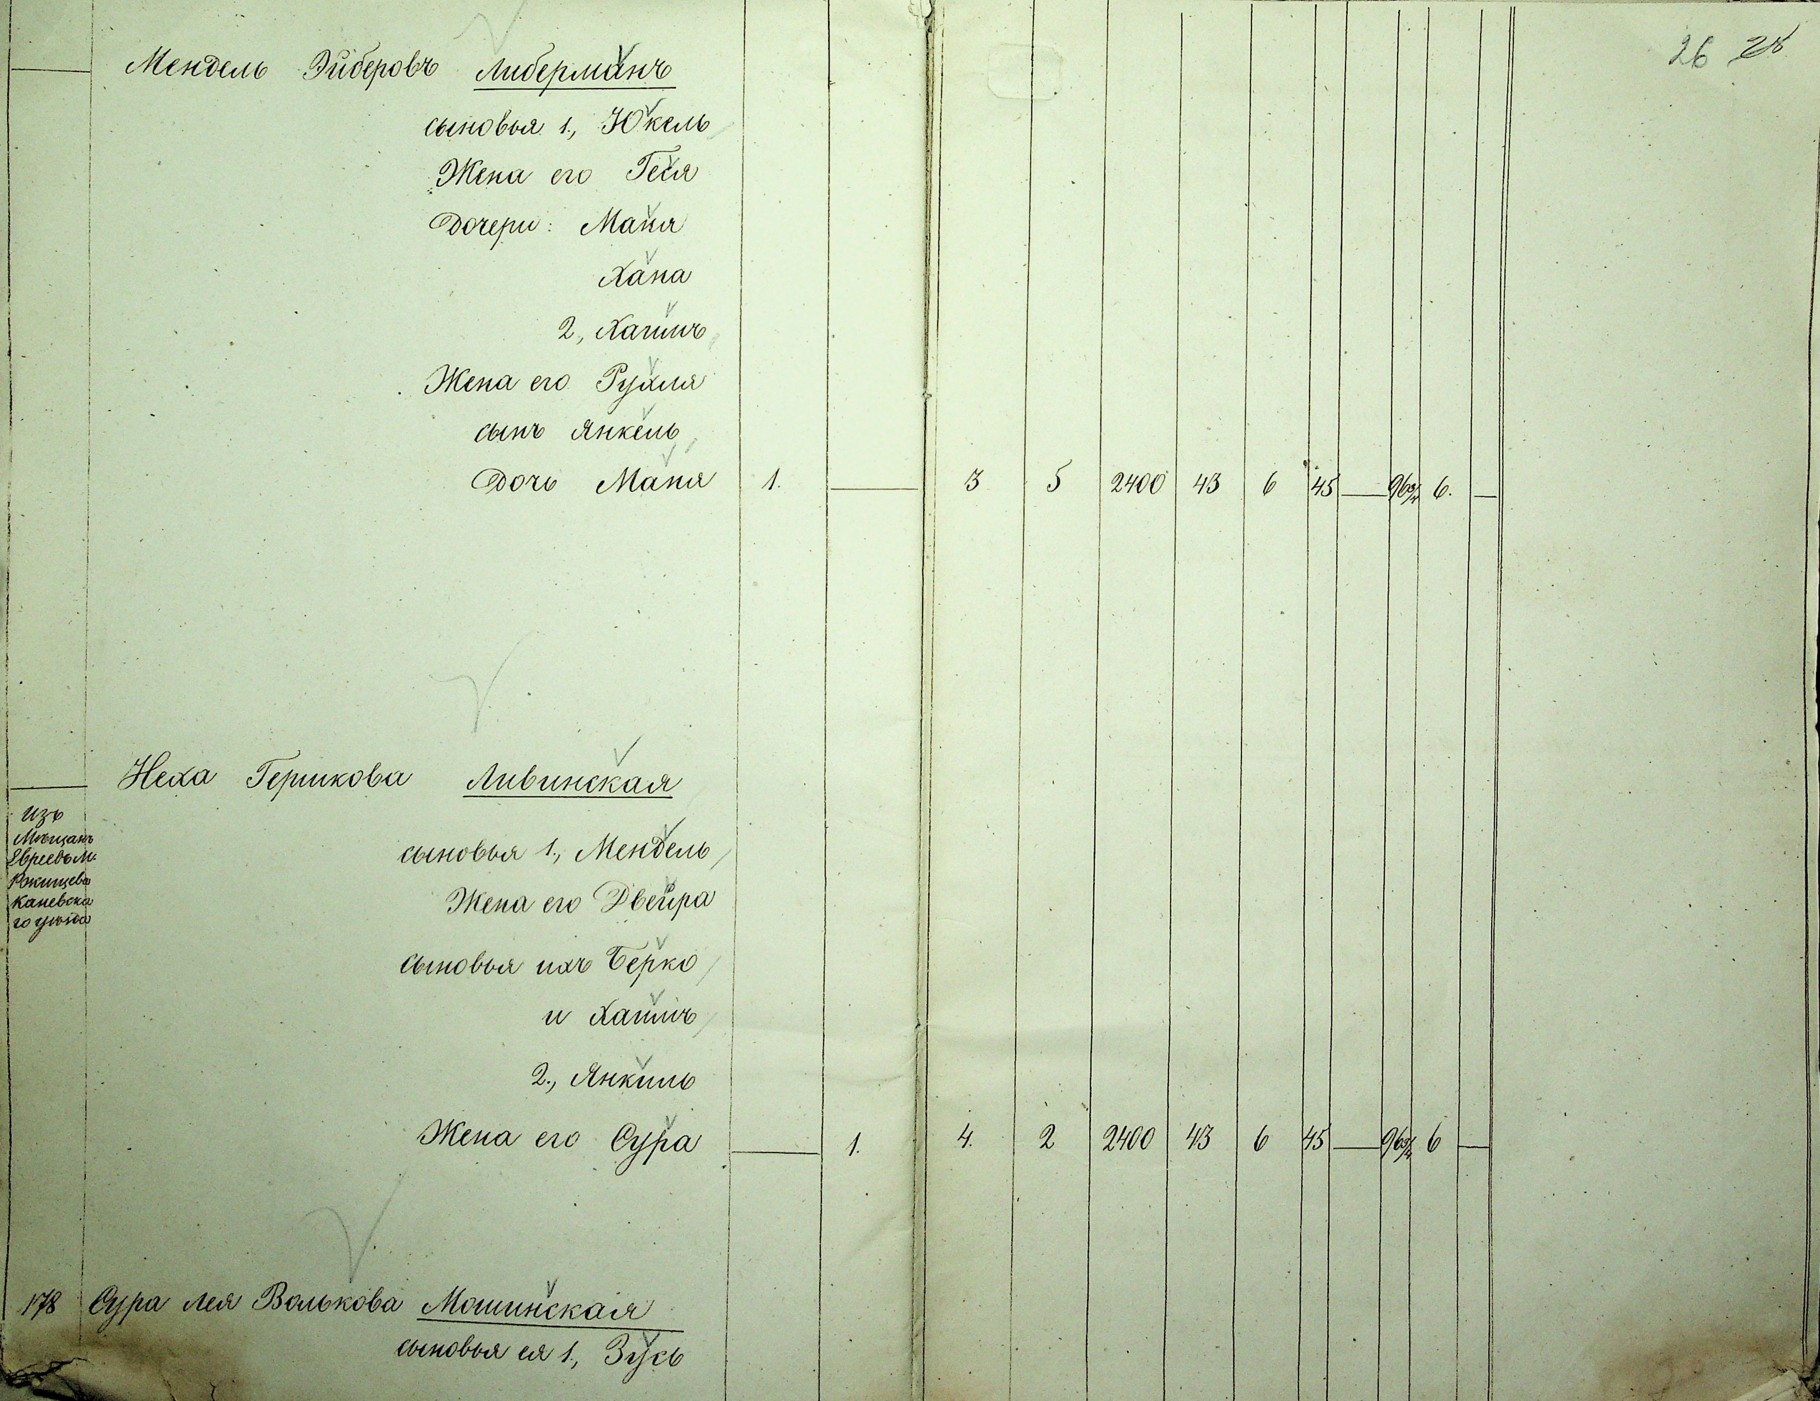 26 28
Мендель Эйберовъ Либерманъ
сыновья 1, Юкель
Жена его Геся
Дочери: Маня
Хана
2, Хаимъ
Жена его Рухля
сынъ Янкель
Дочь Маня 1. — 3 5 2400 43 6 45 — 96¾ 6. —
Неха Гершкова Ливинская
изъ
Мѣщанъ
Евреевъ м.
Ракищева
Каневска
го уѣзда
сыновья 1, Мендель
Жена его Двейра
сыновья ихъ Берко
и Хаимъ
2, Янкиль
Жена его Сура — 1. 4. 2 2400 43 6 45 — 96¾ 6 —
178 Сура лея Волькова Мошинская
сыновья ея 1, Зусь